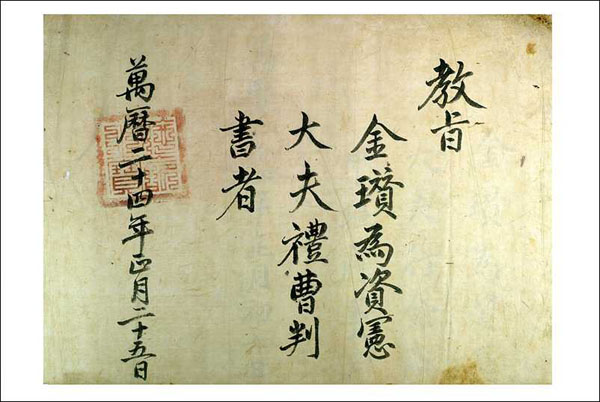 教旨
金瓚為資憲
大夫禮曹判
書者
萬曆二十四年正月二十五日